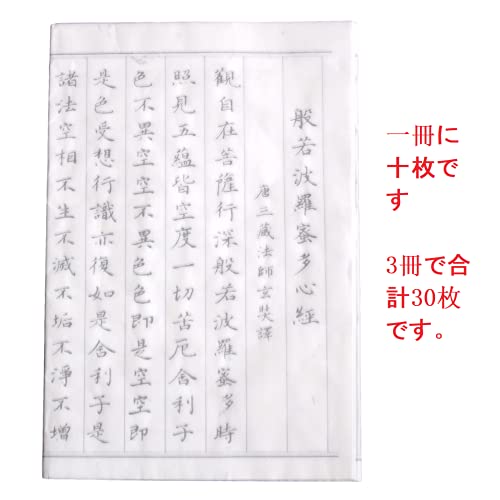 般若波羅蜜多心經
唐三藏法師玄奘譯
觀自在菩薩行深般若波羅蜜多時
照見五蘊皆空度一切苦厄舍利子
色不異空空不異色色即是空空即
是色受想行識亦復如是舍利子是
諸法空相不生不滅不垢不淨不增
一冊に
十枚で
す
3冊で合
計30枚
です。